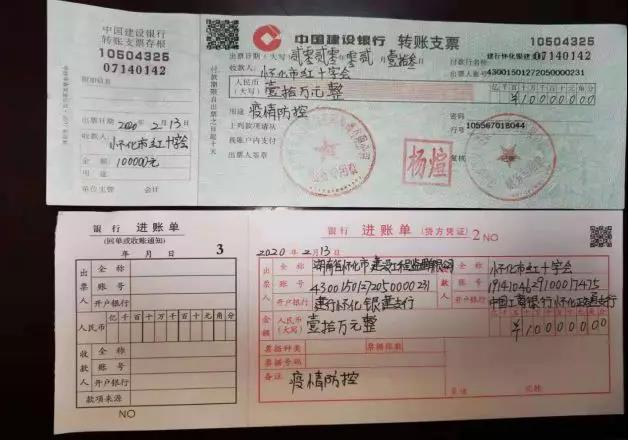 中国建设银行
转账支票存根
10504325
07140142
附加信息
出票日期 2020年2月13日
收款人:
怀化市红十字会
金额:
100000元
用途:
单位主管 会计
付款期限自出票之日起十天
中国建设银行 转账支票
10504325
07140142
出票日期(大写) 贰零贰零年零贰月壹拾叁日
付款行名称:
收款人:怀化市红十字会
出票人账号:43001501272050000231
人民币
(大写)
壹拾万元整
亿千百十万千百十元角分
¥10000000
用途 疫情防控
密码
上列款项请从
行号 105567018044
我账户内支付
出票人签章
复核
杨煊
银行 进账单
(回单或收账通知)
3
年 月 日
出票人
全称
账号
开户银行
人民币
亿千百十万千百十元角分
收款人
全称
账号
开户银行
款项来源
NO
银行 进账单 (贷方凭证) 2 NO
2020年2月13日
出票人
全称 湖南省怀化市建设工程监理有限公司
账号 43001501272050000231
开户银行 建行怀化银建支行
款人
怀化市红十字会
1914104629100017475
金额
人民币
(大写)
壹拾万元整
亿千百十万千百十元角分
¥10000000
票据种类 票据张数
票据号码
备注:
疫情防控
复核 记账